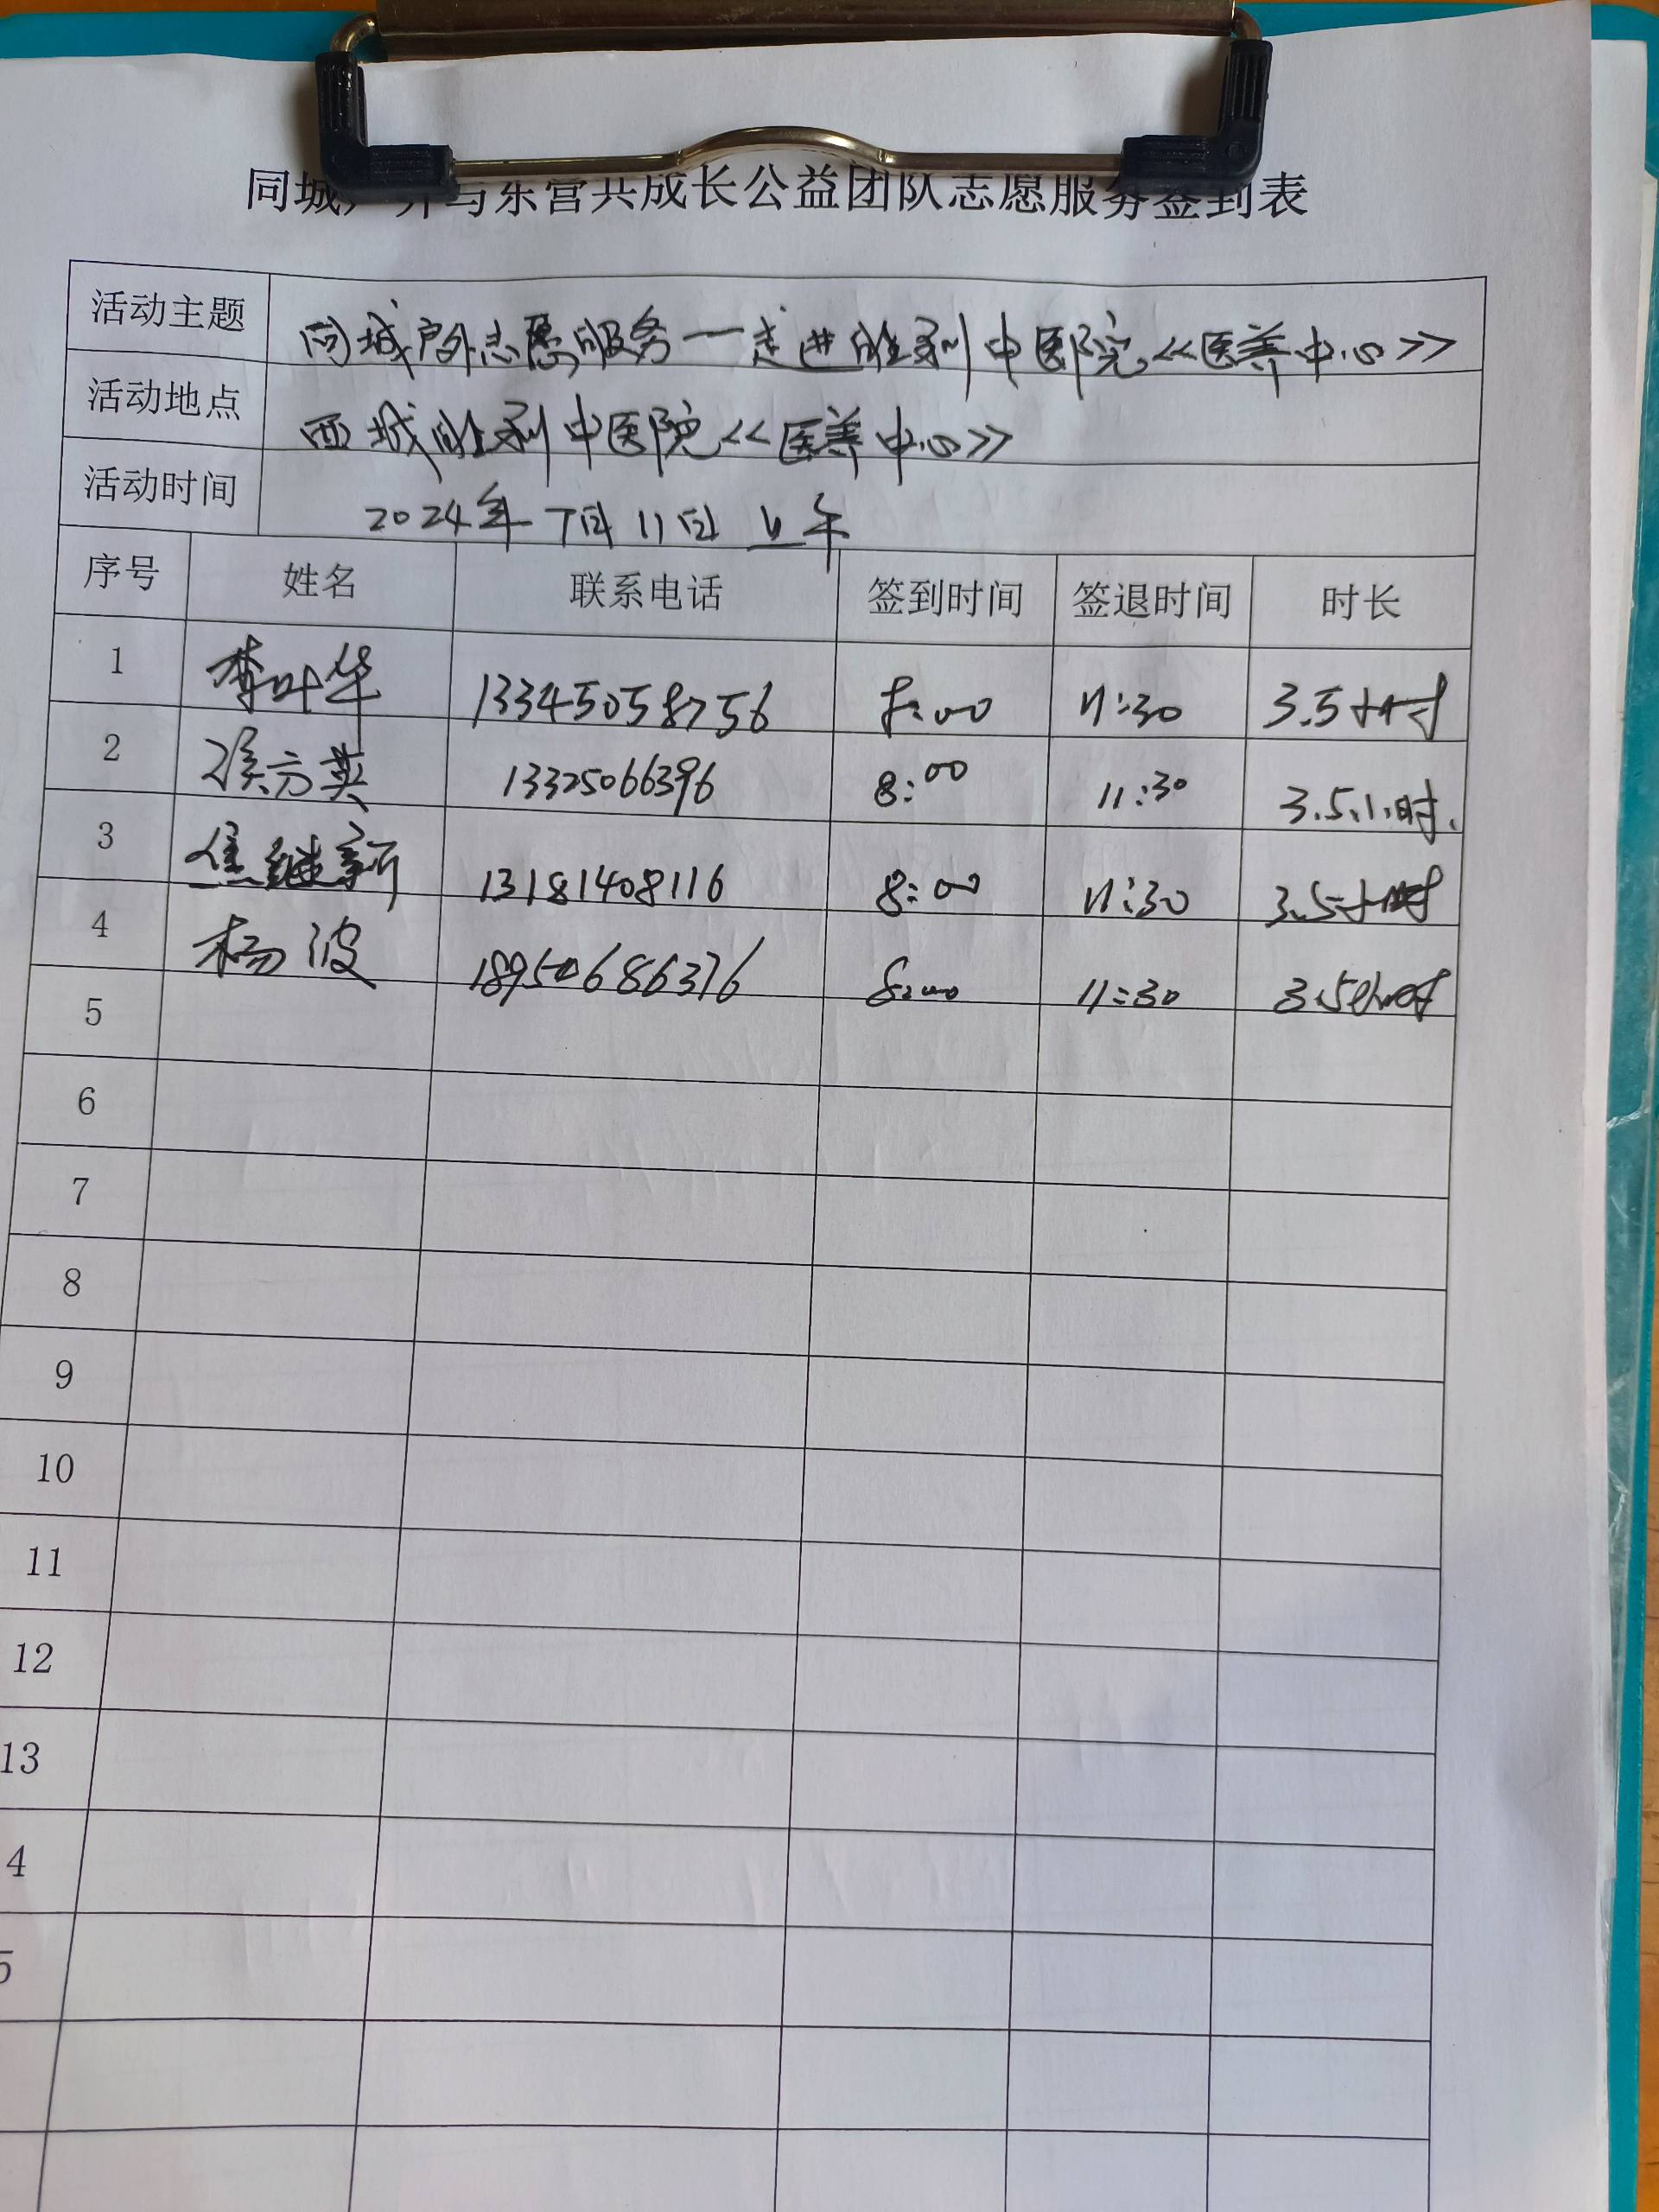 同城户外与东营共成长公益团队志愿服务签到表
活动主题 同城户外志愿服务一走进胜利中医院《医养中心》
活动地点 西城胜利中医院《医养中心》
活动时间 2024年7月11日上午
序号 姓名 联系电话 签到时间 签退时间 时长
1 李叶华 13345058756 8:00 11:30 3.5小时
2 侯方英 13325066396 8:00 11:30 3.5小时.
3 焦继新 13181408116 8:00 11:30 3.5小时
4 杨波 18950686376 8:00 11:30 3.5小时
5
6
7
8
9
10
11
12
13
4
5